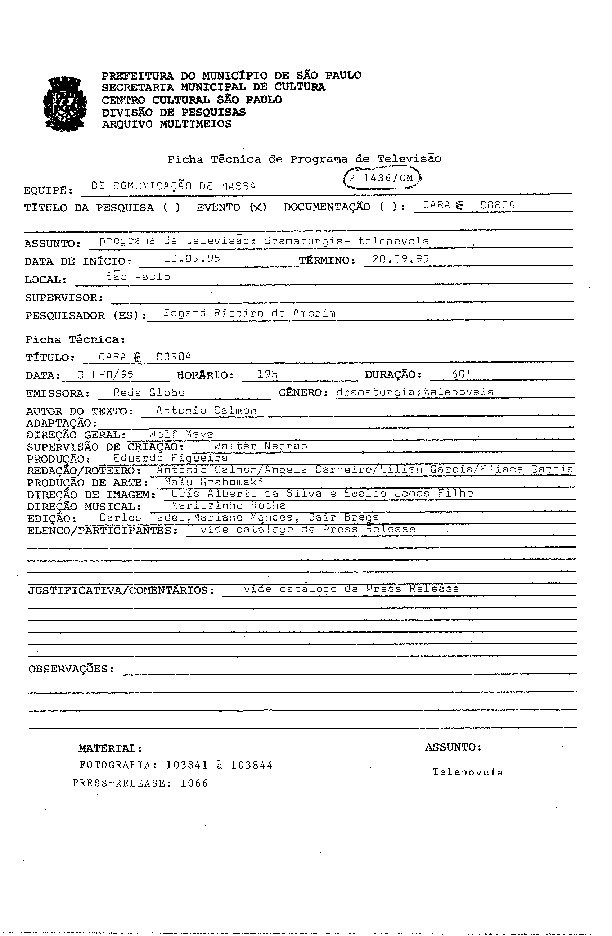 PREFEITURA DO MUNICÍPIO DE SÃO PAULO
SECRETARIA MUNICIPAL DE CULTURA
CENTRO CULTURAL SÃO PAULO
DIVISÃO DE PESQUISAS
ARQUIVO MULTIMEIOS
Ficha Técnica de Programa de Televisão
1436/CM
EQUIPE: DE COMUNICAÇÃO DE MASSA
TÍTULO DA PESQUISA ( ) EVENTO (X) DOCUMENTAÇÃO ( ): CARA E COROA
ASSUNTO: programa de televisão: dramaturgia- telenovela
DATA DE INÍCIO: TÉRMINO:
LOCAL: São Paulo
SUPERVISOR:
PESQUISADOR (ES): Edgard Ribeiro de Amorim
Ficha Técnica:
TÍTULO: CARA E COROA
DATA: HORÁRIO: 19h DURAÇÃO: 60'
EMISSORA: Rede Globo GÊNERO: dramaturgia:telenovela
AUTOR DO TEXTO: Antonio Calmon
ADAPTAÇÃO:
DIREÇÃO GERAL: Wolf Maya
SUPERVISÃO DE CRIAÇÃO: Walter Negrão
PRODUÇÃO: Eduardo Figueira
REDAÇÃO/ROTEIRO: Antonio Calmon/Angela Carneiro/Lilian Garcia/Eliane Garcia
PRODUÇÃO DE ARTE:
DIREÇÃO DE IMAGEM: Alberto da Silva e Filho
DIREÇÃO MUSICAL: Mariozinho Rocha
EDIÇÃO: Carlos Mariano Jair Braga
ELENCO/PARTICIPANTES: vide catálogo de Press Release
JUSTIFICATIVA/COMENTÁRIOS: vide catálogo de Press Release
OBSERVAÇÕES:
MATERIAL: ASSUNTO:
FOTOGRAFIA: 103841 à 103844
Telenovela
PRESS-RELEASE: 1066